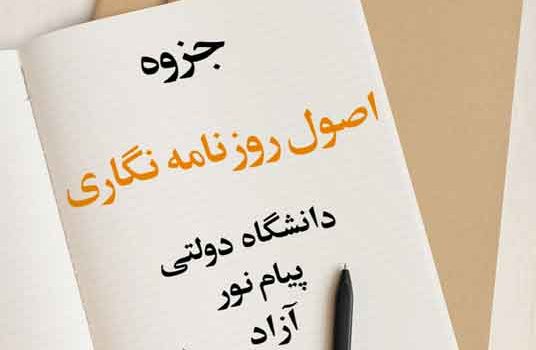 جزوه
اصول روزنامه نگاری
دانشگاه دولتی
پیام نور
آزاد